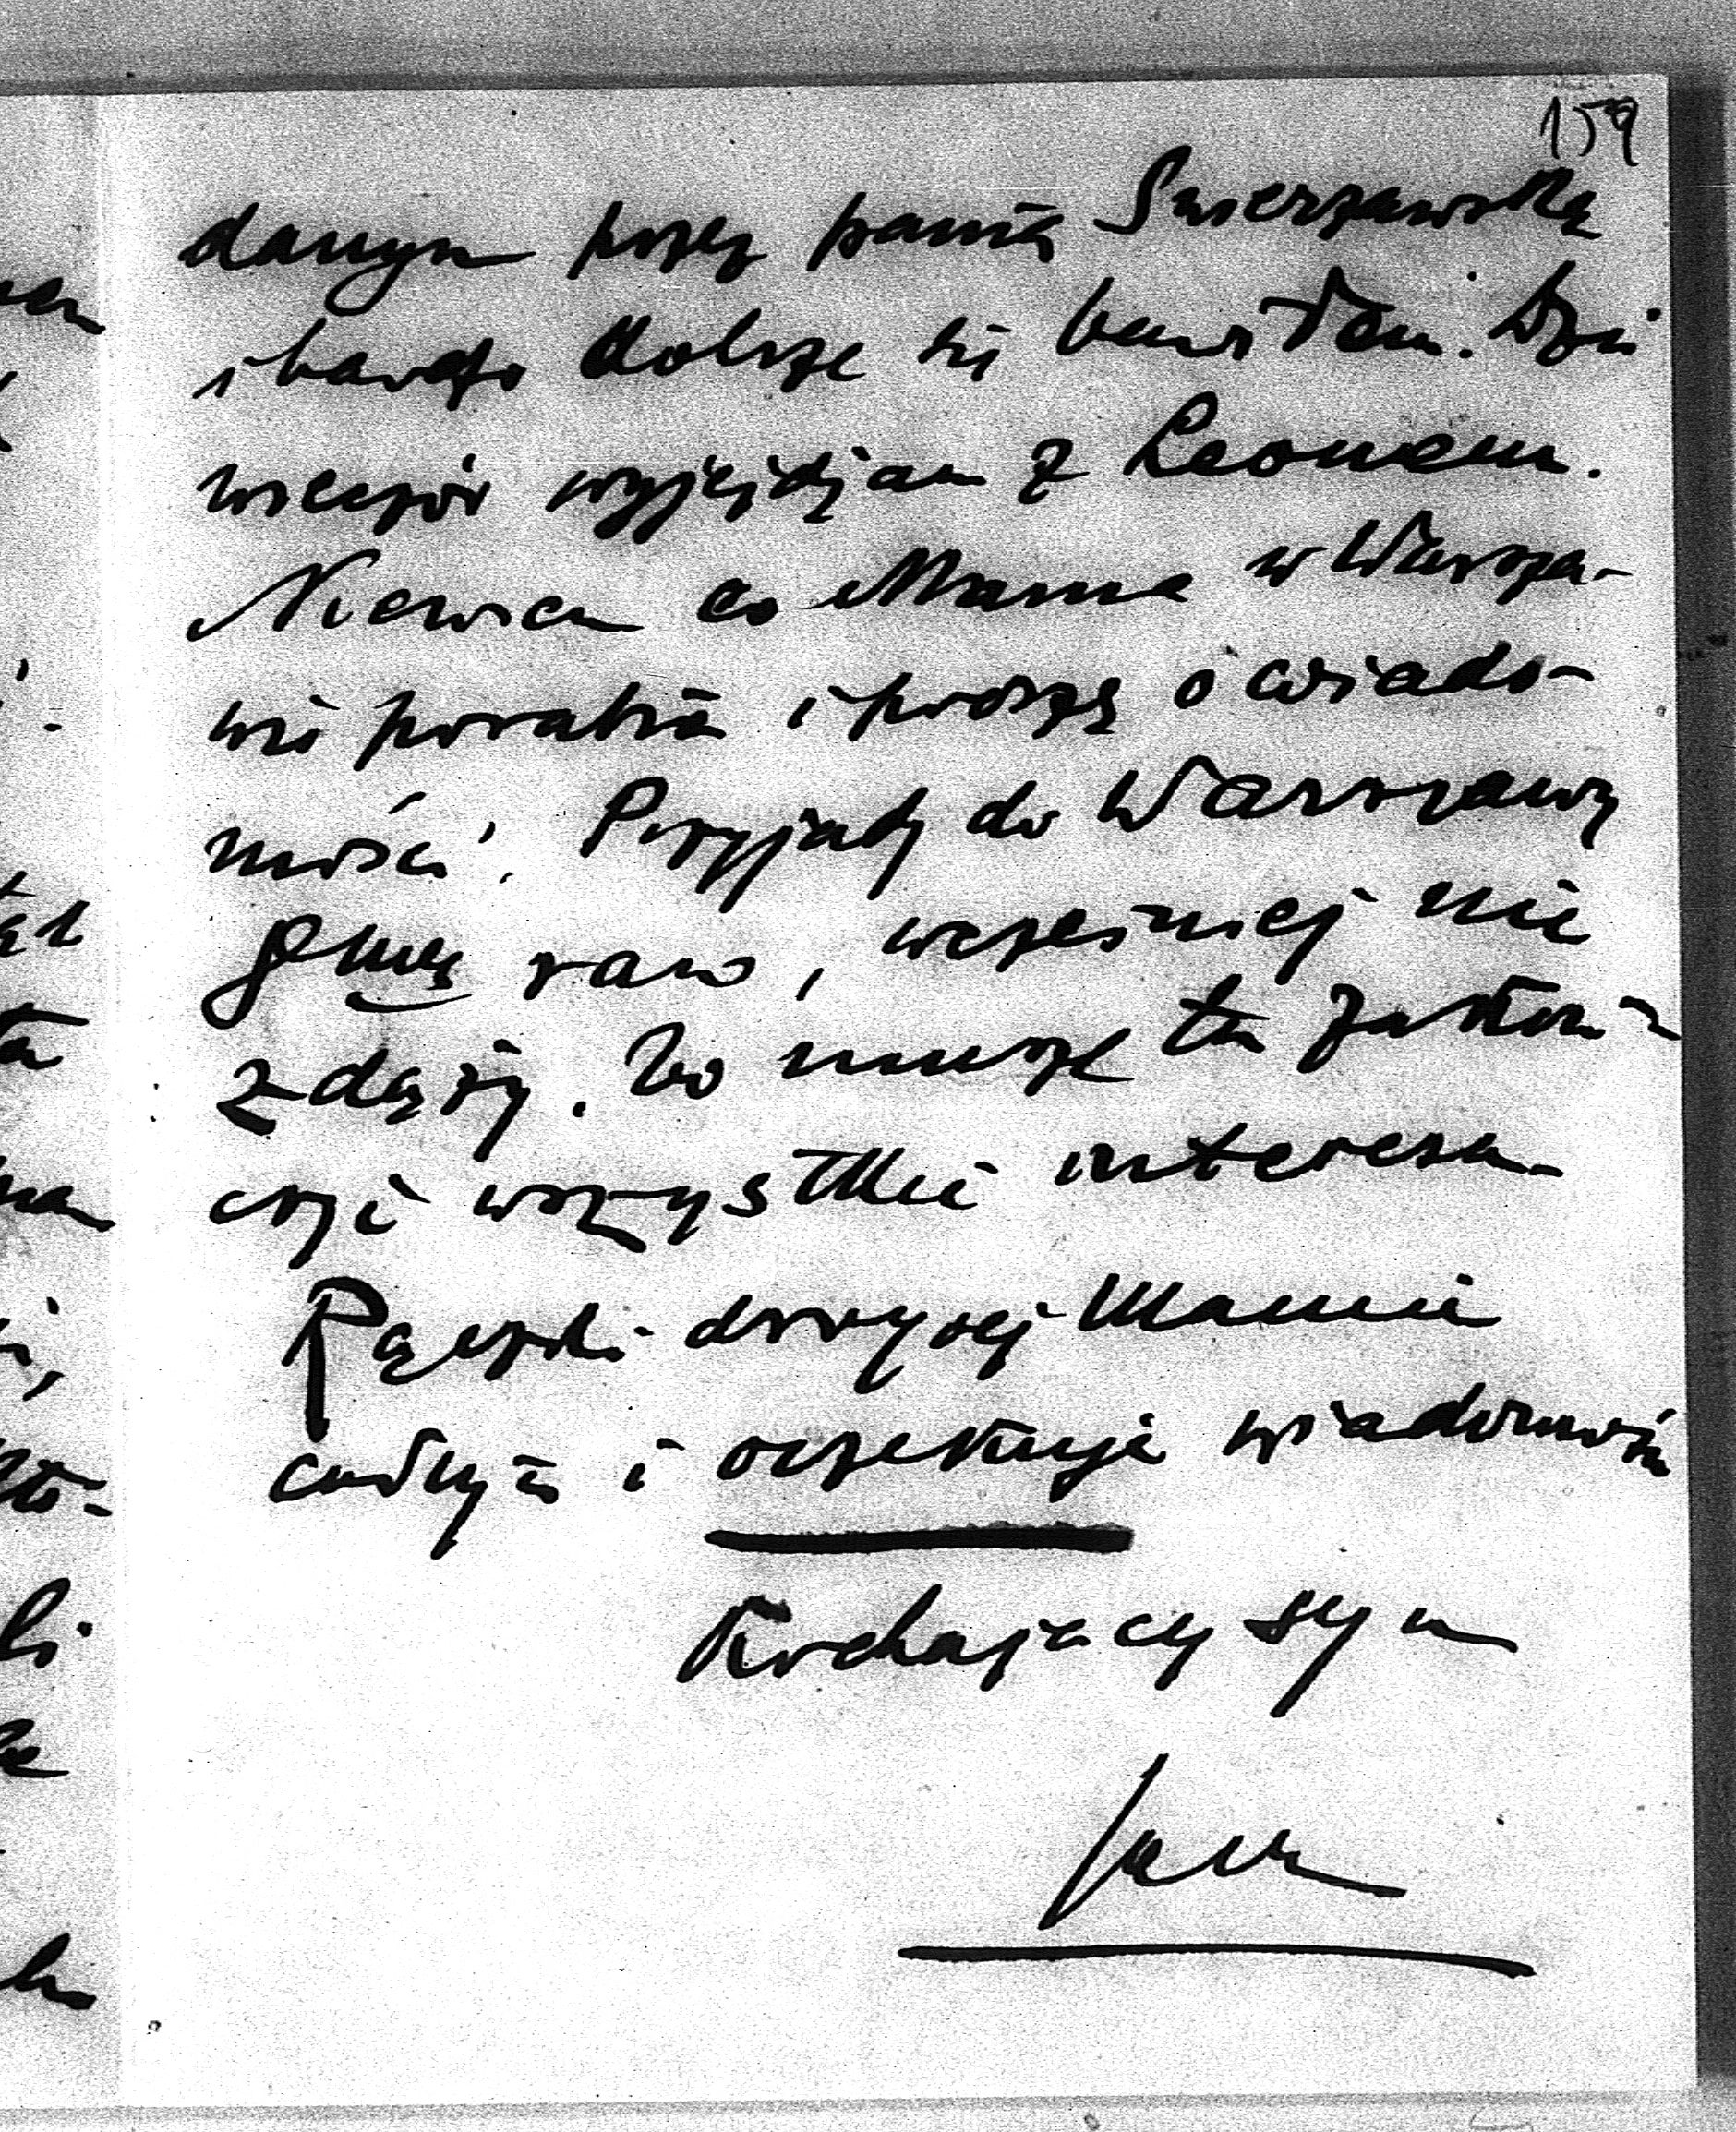 159
danym przez panią Swierzawską
i bardzo dobrze się bawiłem. Dziś
wieczór wyjeżdżam z Leonem.
Niewiem co Mama w Warsza-
wie porabia i proszę o wiado-
mość. Przyjadę do Warszawy
rano, wcześniej nie
zdążę. bo muszę tu zakoń-
czyć wszystkie interesa.
Rączki drogiej Mamie
całuję i oczekuję wiadomości
Kochający syn